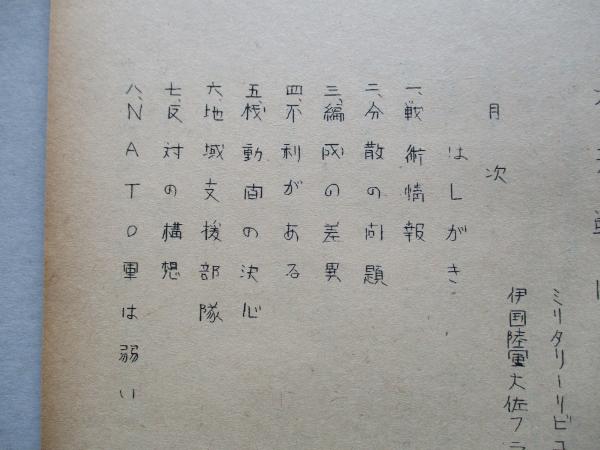 ミリタリーリビュ
伊国陸軍大佐フラ
目次
はしがき
一、戦術情報
二、分散の問題
三、編成の差異
四、不利がある
五、機動面の決心
六、地域支援部隊
七、反対の構想
八、NATO軍は弱い